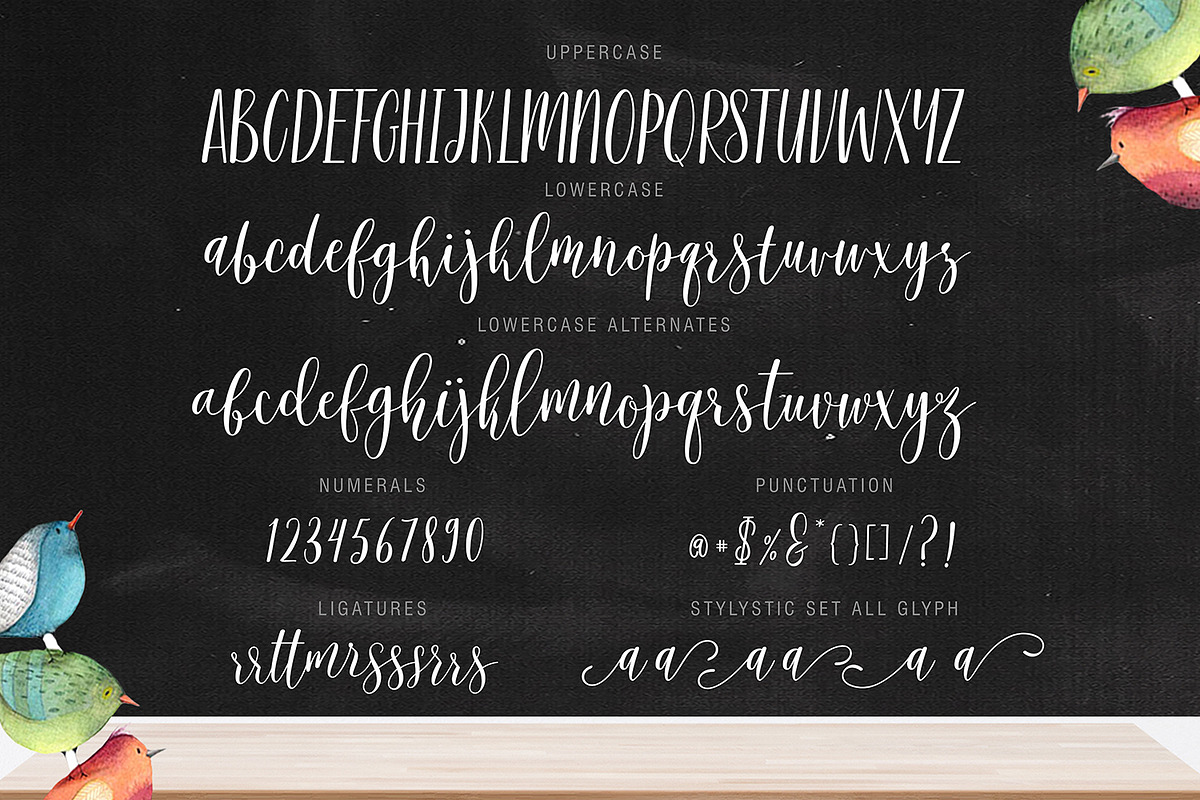 UPPERCASE
ABCDEFGHIJKLMNOPQRSTUVWXYZ
LOWERCASE
abcdefghijklmnopqrstuvwxyz
LOWERCASE ALTERNATES
abcdefghijklmnopqrstuvwxyz
NUMERALS
1234567890
PUNCTUATION
@#$%&*{}[]/?!
LIGATURES
rrttmrsssrrs
STYLYSTIC SET ALL GLYPH
a a a a a a